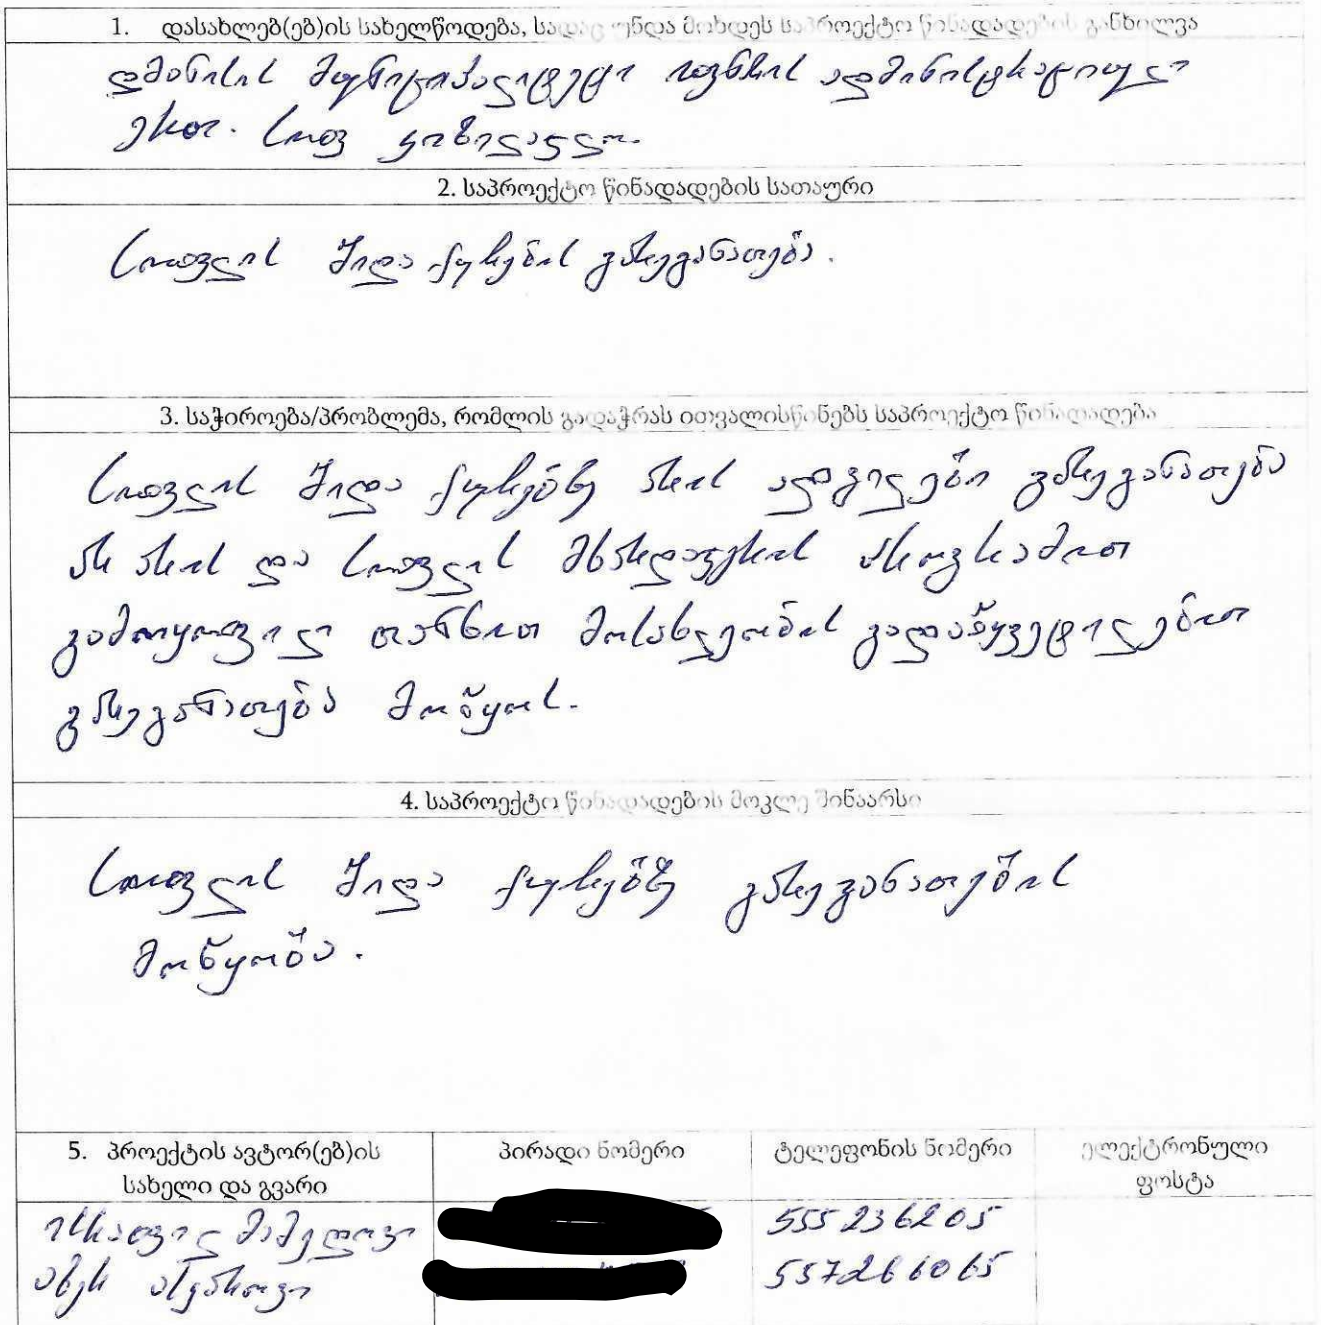 1. დასახლებ(ებ)ის სახელწოდება, სადაც უნდა მოხდეს საპროექტო წინადადების განხილვა
დმანისის მუნიციპალიტეტი ადმინისტრაციულ
ერთ. სოფ ყიზილაჯლო.
2. საპროექტო წინადადების სათაური
სოფლის შიდა ქუჩების გარეგანათება.
3. საჭიროება/პრობლემა, რომლის გადაჭრას ითვალისწინებს საპროექტო წინადადება
სოფლის შიდა ქუჩებზე არის ადგილები გარეგანათება
არ არის და სოფლის მხარდაჭერის პროგრამით
გამოყოფილ თანხით მოსახლეობის გადაწყვეტილებით
გარეგანათება მოწყოს.
4. საპროექტო წინადადების მოკლე შინაარსი
სოფლის შიდა ქუჩებზე გარეგანათების
მოწყობა.
5. პროექტის ავტორ(ებ)ის პირადი ნომერი ტელეფონის ნომერი ელექტრონული
სახელი და გვარი ფოსტა
ისრაფილ მამედოვი 555236205
557266065